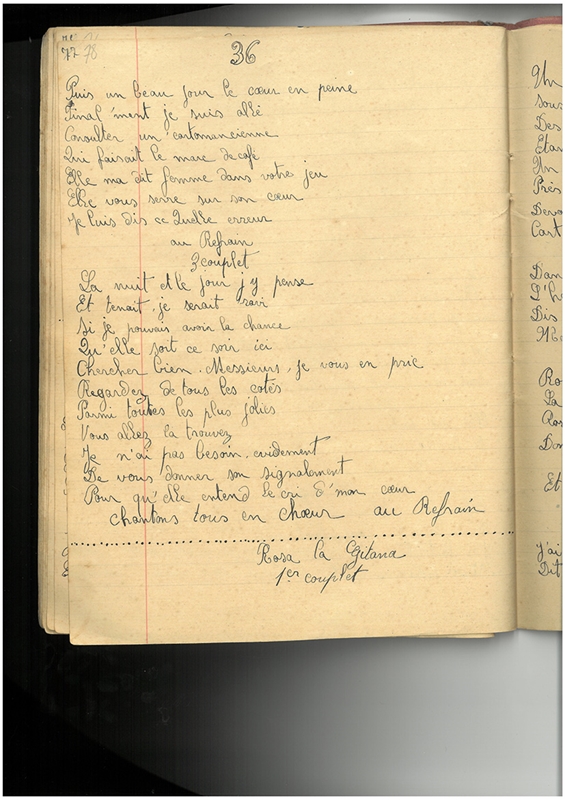 77 78
36
Puis un beau jour le cœur en peine
Final'ment je suis allé
Consulter un' cartomancienne
Qui faisait le marc de café
Elle ma dit femme dans votre jeu
Elle vous serre sur son cœur
Je luis dis ce Quelle erreur
au Refrain
3 couplet
La nuit et le jour j'y pense
Et tenait je serait ravi
Si je pouvais avoir la chance
Qu'elle soit ce soir ici
Chercher bien. Messieurs, je vous en prie
Regardez de tous les cotés
Parmi toutes les plus jolies
Vous allez la trouvez
Je n'ai pas besoin evidement
De vous donner son signalement
Pour qu'elle entend le cri d'mon cœur
chantons tous en chœur au Refrain
Rosa la Gitana
1er couplet
Un
sous
Des
Etan
Un
Près
Deva
Cart
Dan
Dis
Ro
La
Ros
Don
Et
j'ai
Dit